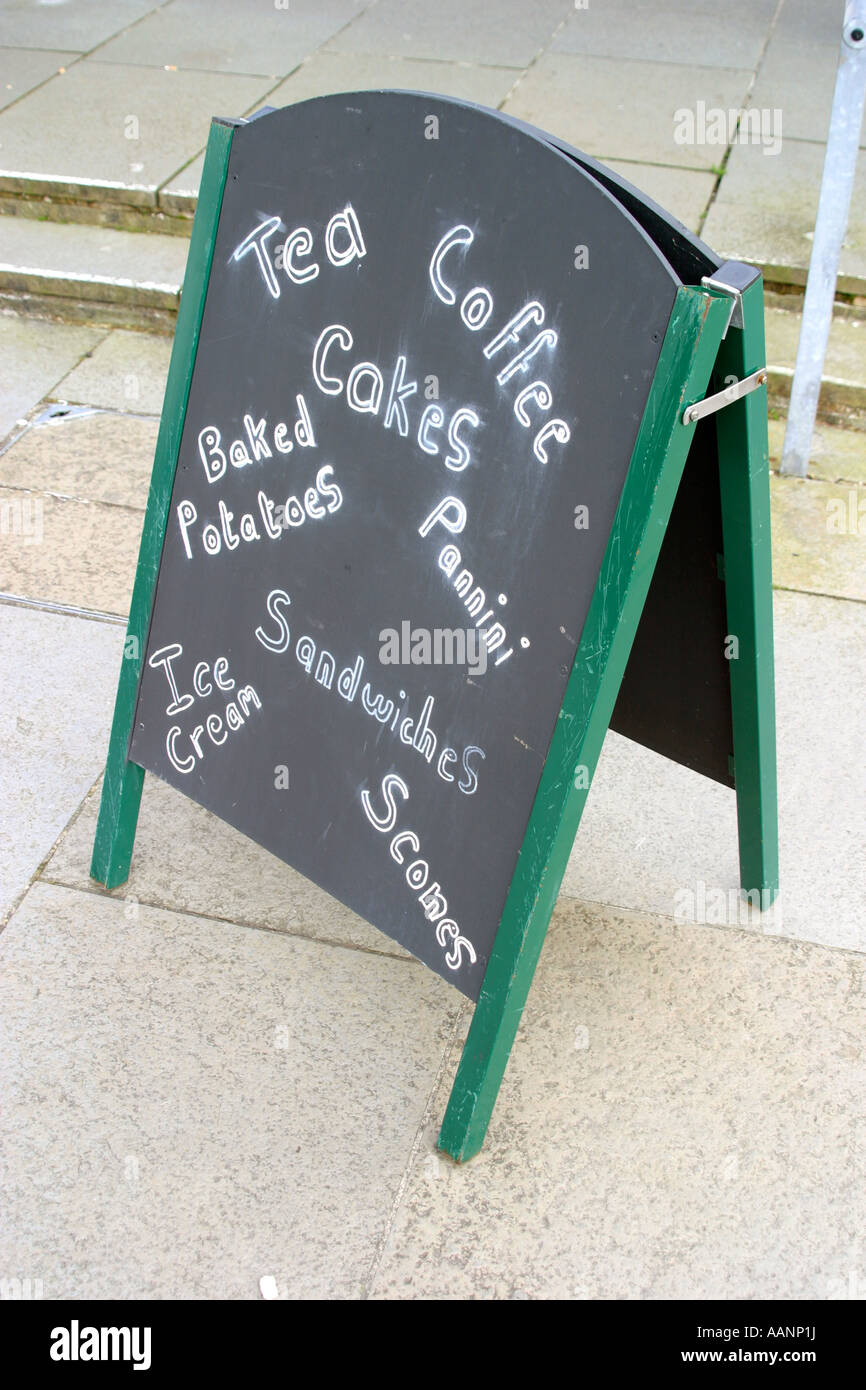 Tea
Coffee
Cakes
Baked
Potatoes
Pannini
Sandwiches
Ice
Cream
Scones
alamy
alamy
Image ID: AANP1J
www.alamy.com